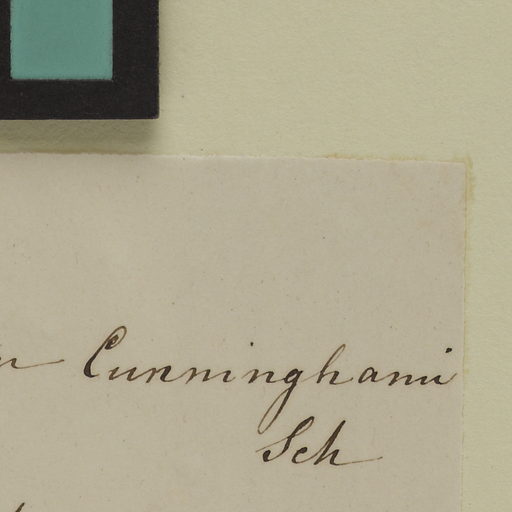 Cunninghami
Sch